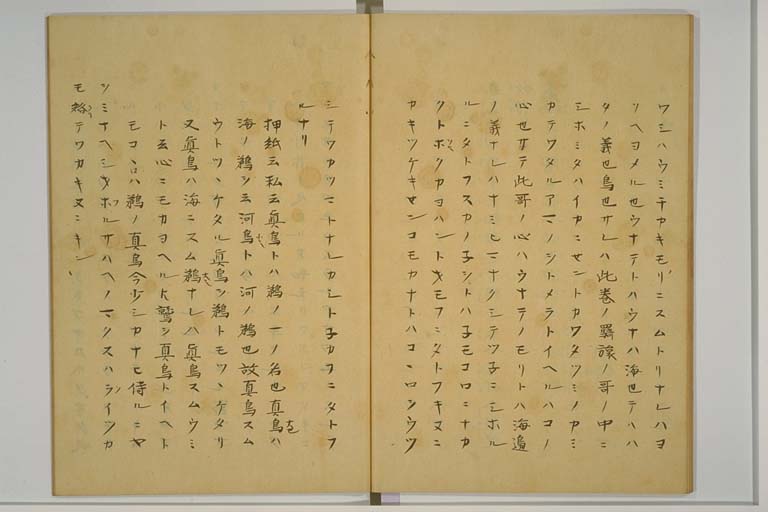 ワシハウミチカキモリニスムトリナレハヨ
ソヘヨメル也ウナテトハウナハ海也テハハ
タノ義也鳥也サレハ此巻ノ羇旅ノ哥ノ中ニ
シホミタハイカニセントカワタツミノカミ
カテワタルアマノシトメラトイヘルハコノ
心也サテ此哥ノ心ハウナテノモリトハ海邉
ノ義ナレハナミヒマナクシテツ子ニシホル
ルニタトフスカノ子シトハ子モコロニナカ
クトホクカヨハントオモフニタトフキヌニ
カキツケキセンコモカナトハコヽロシウツ
シテワカツマトナルカシト子カフニタトフ
ルナリ
押紙云私云眞鳥トハ鵜ノ一ノ名也真鳥ハ
海ノ鵜シ云河鳥トハ河ノ鵜也故真鳥スム
ウトツヽケタル眞鳥シ鵜トモツヽケタリ
又眞鳥ハ海ニスム鵜ナレハ眞鳥スムウミ
ト云心ニモカヨヘルト鷲シ真鳥トイヘト
モコヽロハ鵜ノ真鳥今少シカナヒ侍ルニヤ
シミナヘシオホルサハヘノマクスハライツカ
モ絡テワカキヌニキン